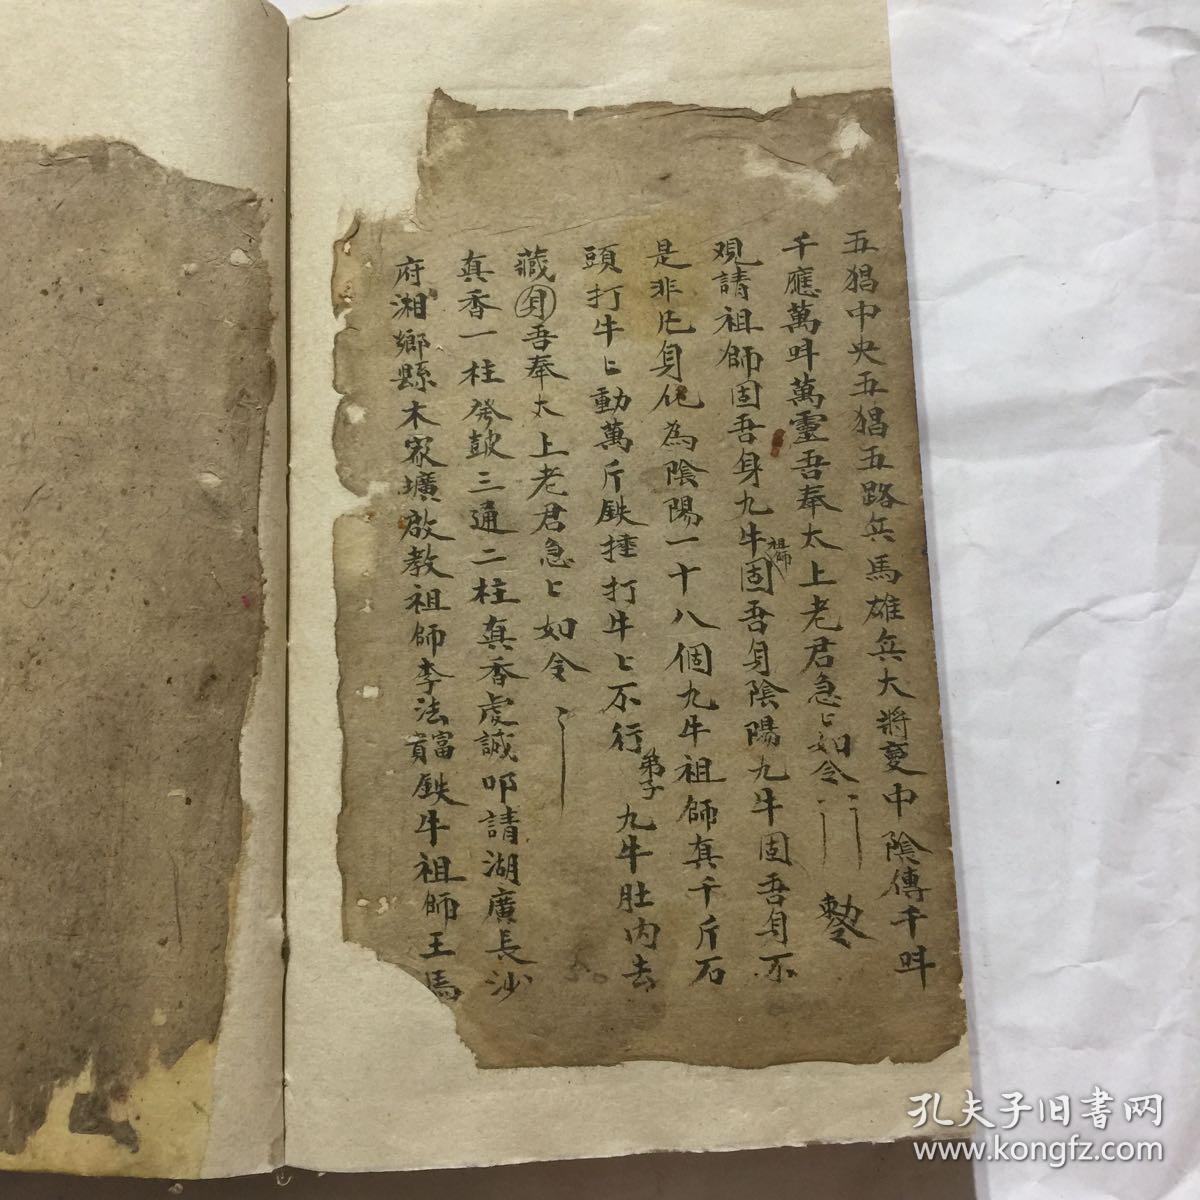 五猖中央五猖五路兵馬雄兵大將變中陰傳千叫
千應萬叫萬靈吾奉太上老君急〻如令 敕令
觀請祖師固吾身九牛祖師固吾身陰陽九牛固吾身不
是非凡身化為陰陽一十八個九牛祖師真千斤石
頭打牛〻動萬斤鉄捶打牛〻不行弟子九牛肚內去
藏身吾奉太上老君急〻如令
真香一柱發鼓三通二柱真香虔誠叩請湖廣長沙
府湘鄉縣木家壙啟教祖師李法富貢鉄牛祖師王馬
孔夫子旧書网
www.kongfz.com